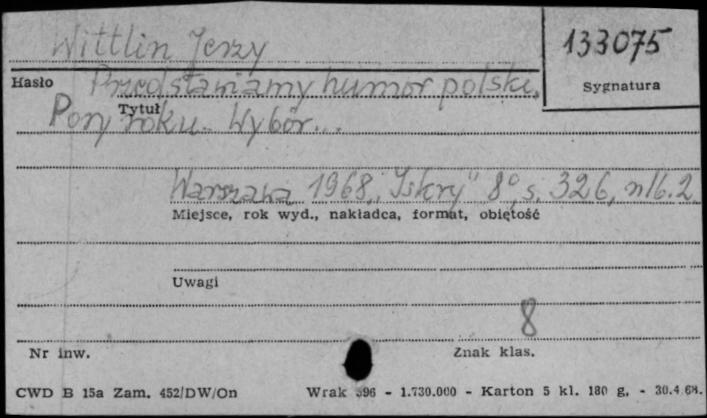 Wittlin Jerzy
133075
Hasło
Sygnatura
Przedstawiamy humor polski.
Tytuł
Pory roku. Wybór...
Warszawa 1968, "Iskry" 8°, s. 326, nlb. 2.
Miejsce, rok wyd., nakładca, format, obiętość
Uwagi
8
Nr inw.
Znak klas.
CWD B 15a Zam. 452/DW/On
Wrak 596 - 1.730.000 - Karton 5 kl. 180 g. - 30.4.68.